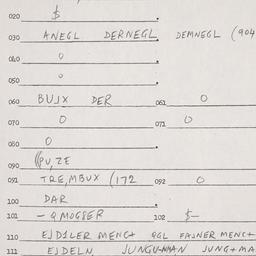 020 $
030 ANEGL DERNEGL DEMNEGL (904
040 0
050 0
060 BUJX DER 061 0
070 0 071 0
080 0
090 ((PU, ZE
091 TRE, MBUX (172 092 0
100 DAR
101 - Q MOGSER 102 $-
110 EJDILER MENC+ QGL FAJNER MENC+
111 EJDELN, JUNGU-MAN JUNG+MA